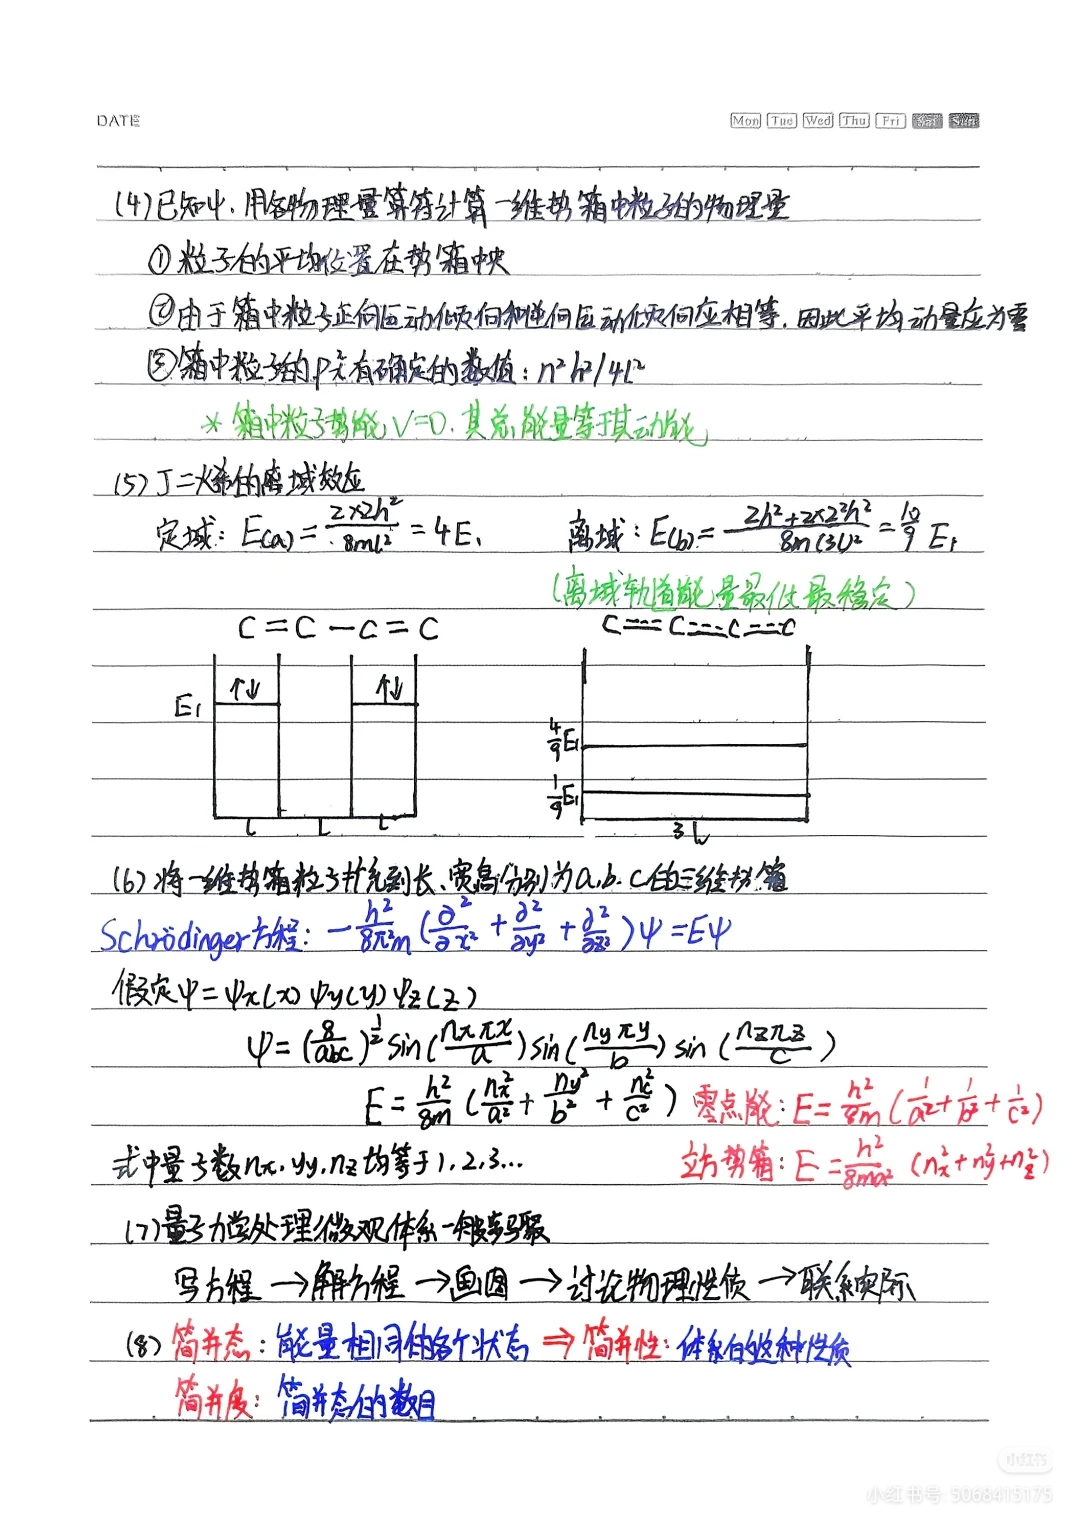 DATE
Mon Tue Wed Thu Fri Sat Sun
(4)已知ψ.用各物理量算符计算一维势箱中粒子的物理量
①粒子的平均位置在势箱中央
②由于箱中粒子正向运动倾向和逆向运动倾向应相等.因此平均动量应为零
③箱中粒子的P²x有确定的数值:n²h²/4l²
*箱中粒子势能V=0.其总能量等于其动能
(5)丁二烯的离域效应
定域:E(a)=2×2h²/8ml²=4E₁ 离域:E(b)=2h²+2×2²h²/8m(3l)²=10/9 E₁
(离域轨道能量最低最稳定)
C=C-C=C C┄C┄C┄C
E₁ ↑↓ ↑↓
4/9E₁
1/9E₁
l l l 3l
(6)将一维势箱粒子扩充到长、宽高分别为a.b.c的三维势箱
Schrödinger方程:-h²/8π²m(∂²/∂x²+∂²/∂y²+∂²/∂z²)ψ=Eψ
假定ψ=ψx(x)ψy(y)ψz(z)
ψ=(8/abc)^½ sin(nxπx/a)sin(nyπy/b)sin(nzπz/c)
E=h²/8m(nx²/a²+ny²/b²+nc²/c²) 零点能:E=h²/8m(1/a²+1/b²+1/c²)
式中量子数nx,yy,nz均等于1,2,3... 立方势箱:E=h²/8ma²(nx²+ny²+nz²)
(7)量子力学处理微观体系一般步骤
写方程→解方程→画图→讨论物理性质→联系实际
(8)简并态:能量相同的各个状态⇒简并性:体系的这种性质
简并度:简并态的数目
小红书
小红书号:5068415175